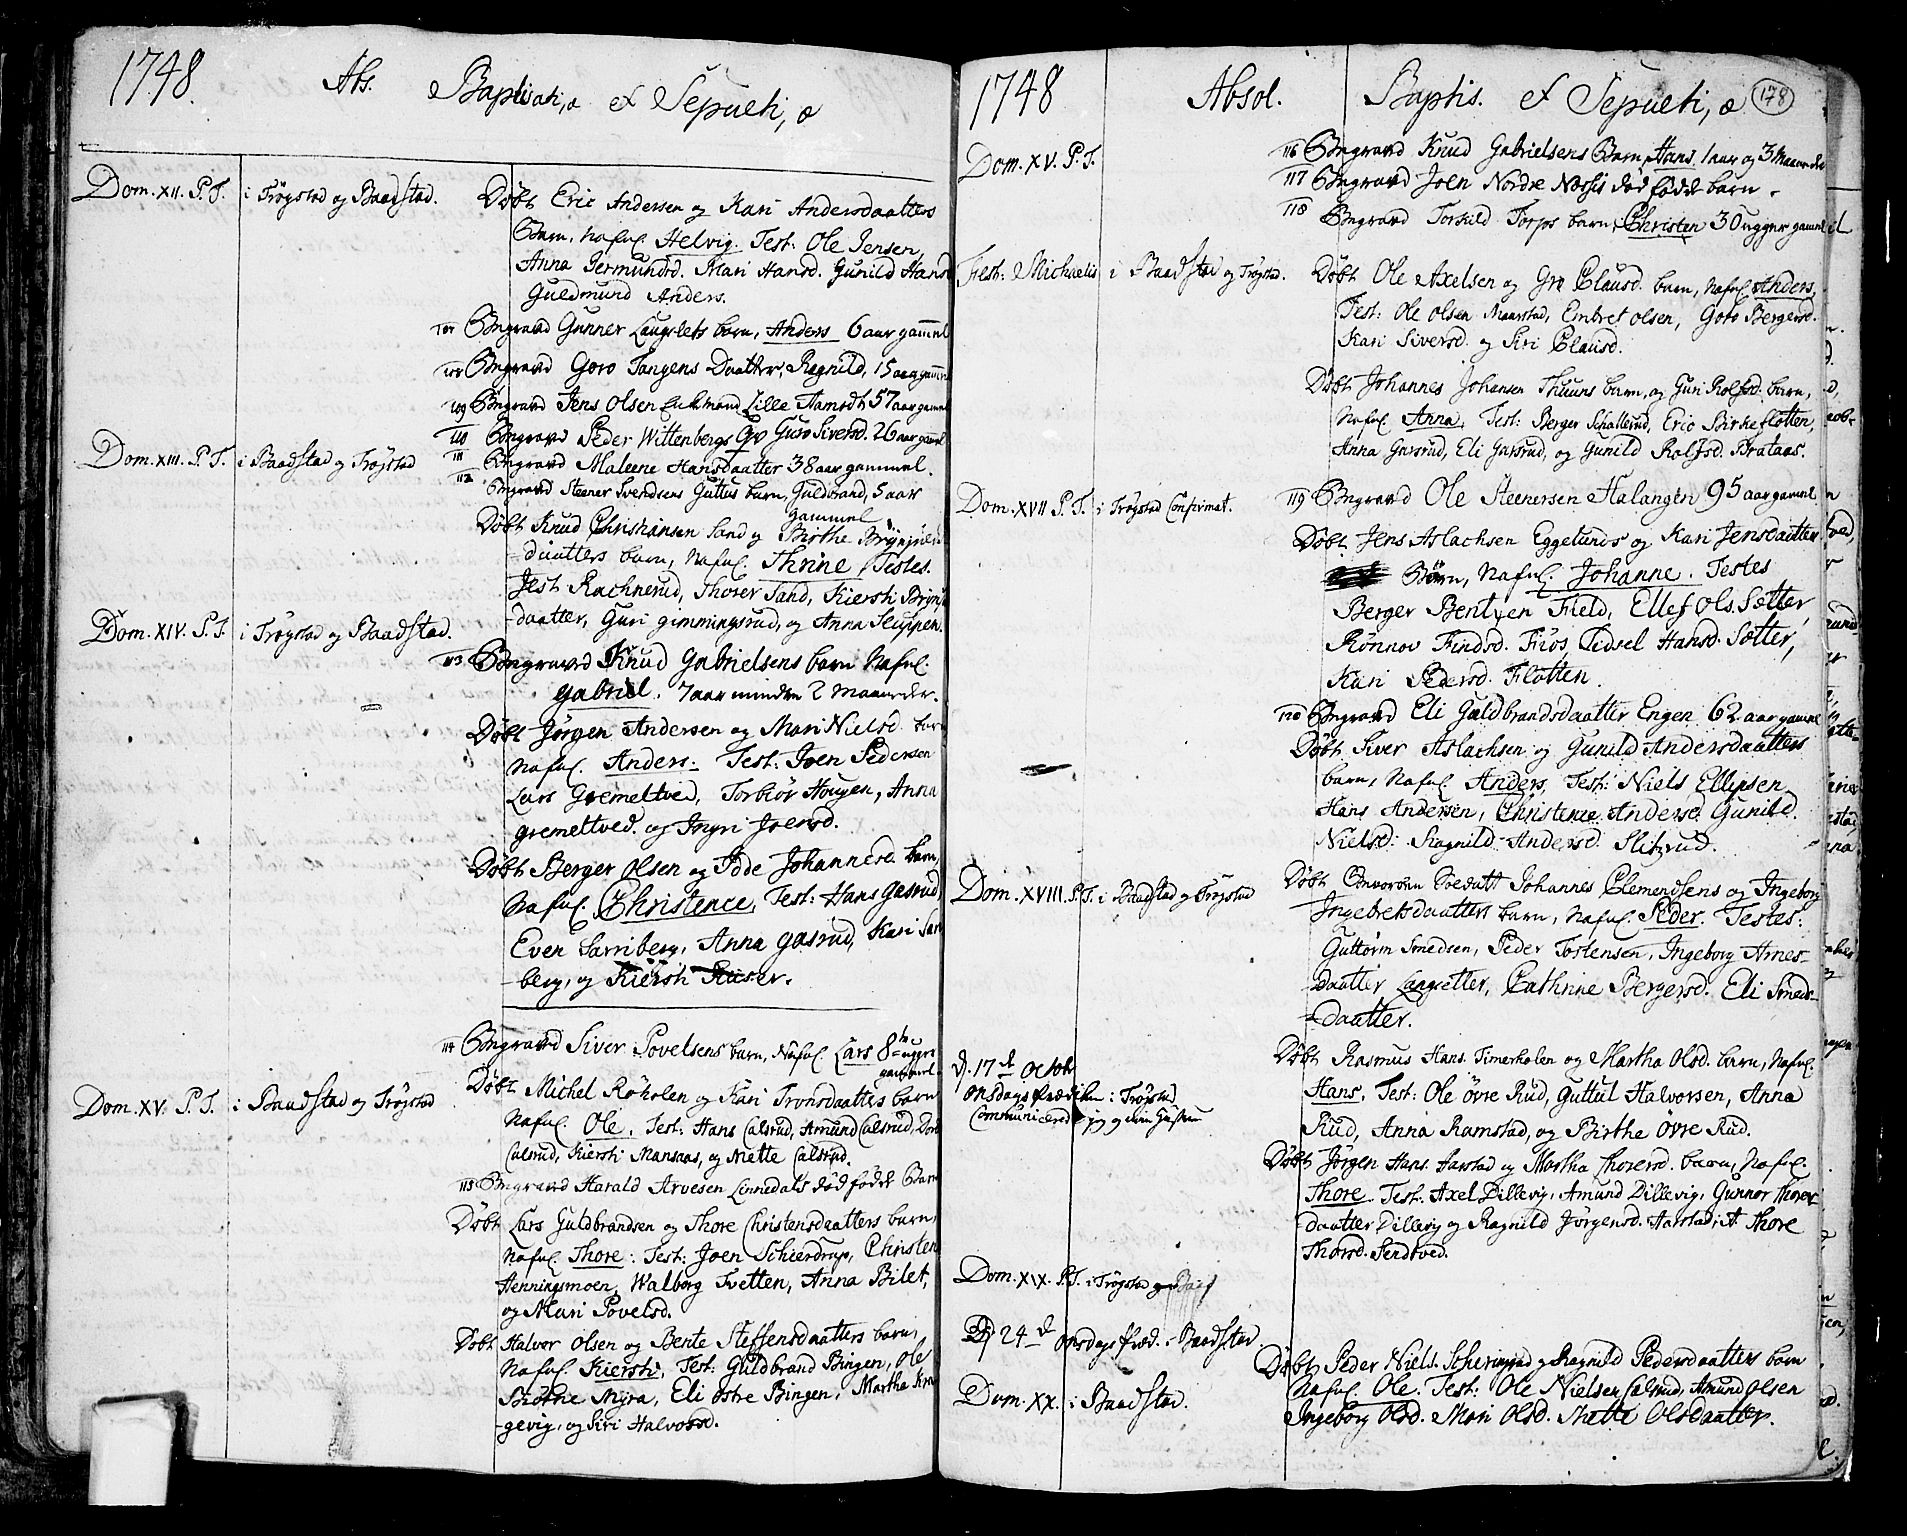 1748. Abs. Baptizati, æ et Sepulti, æ
Dom. XII. P. T. i Trøgstad og Baadstad.
Døbt Eric Andersen og Kari Andersdaatters
Barn, Nafnl. Helvig. Test: Ole Jensen,
Anna Germundsd. Mari Hansd. Gunild Hansd
Guldmund Anders.
107 Begravd Gunner Langslets barn, Anders 6 aar gammel
108 Begravd Goro Tangens Daatter, Ragnild, 15 aar gammel
109 Begravd Jens Olsen Lille Hamrodt 57 aar gammel
110 Begravd Peder Wittenbergs Guro Siversd. 26 aar gamel
Dom. XIII. P. T. i Baadstad og Trøgstad
111 Begravd Maleene Hansdaatter 38 aar gammel.
112 Begravd Steener Svendsens Guttus barn, Guldbrand, 5 aar
gammel
Døbt Knud Christiansen Sand og Birthe Brynjuls
daatters barn, Nafnl. Thrine, Testes.
Jest Rachnerud, Thorer Sand, Kiersti Brynjuls
daatter, Guri gimmingsrud, og Anna Slippen.
Dom. XIV. P. T. i Trøgstad og Baadstad.
113 Begraved Knud Gabrielsens barn Nafnl.
Gabriel. 7 aar minden 2 Maaneder.
Døbt Jørgen Andersen og Mari Nielsd. barn
Nafnl. Anders: Test: Joen Pedersen
Lars Gremeltved, Torbiør Hougen, Anna
gremeltved. og Ingri Joensd.
Døbt Berger Olsen og Idde Johannesd. barn,
Nafnl. Christence, Test: Hans Gasrud,
Even Sarriberg, Anna gasrud, Kari Sarri
berg, og Kiersti Kuser.
114 Begravd Siver Povelsens barn, Nafnl. Lars 8te ugger
gammel.
Dom. XV. P. T. i Baadstad og Trøgstad
Døbt Michel Røkolen og Kari Tronsdaatters barn
Nafnl. Ole. Test: Hans Calsrud, Amund Calsrud, Dort
Calsrud, Kiersti Mansaas, og Mette Calsrud.
115 Begravd Harald Arvesen Linnedals død føde Barn
Døbt Lars Guldbrandsen og Thore Christensdaatters barn,
Nafnl. Thore: Test: Joen Schierdrup, Christen
Henningsmoen, Walborg Tvetten, Anna Bilet,
og Mari Povelsd.
Døbt Halvor Olsen og Bente Steffensdaatters barn,
Nafnl. Kiersti, Test: Guldbrand Bingen, Ole
Myra, Eli østre Bingen, Martha Kra
gevig, og Siri Halvorsd.
1748 Absol. Baptis. et Sepulti, æ 178
Dom. XV. P. T.
116 Begravd Knud Gabrielsens Barn, Hans 1 aar og 3 Maaneder
117 Begravd Joen Nordre Næsses død føde barn.
118 Begravd Torkild Torps barn, Christen 30 ugger gammel
Fest: Michaelis i Baadstad og Trøgstad.
Døbt Ole Axelsen og Gro Clausd. barn, Nafnl. Anders,
Test: Ole Olsen Maarstad, Embret Olsen, Goro Bergersd.
Kari Siversd. og Siri Clausd.
Døbt Johannes Johansen Thuuns barn, og Guri Rolfsd. barn,
Nafnl. Anna, Test: Berger Schallerud, Eric Birkeflotten,
Anna Gasrud, Eli Gasrud, og Gunild Rolfsd. Brataas.
Dom. XVII P. T. i Trøgstad Confirmat.
119 Begravd Ole Steenersen Halangen 95 aar gammel
Døbt Jens Aslachsen Eggelunds og Kari Jensdaatter
Børn, Nafnl. Johanne. Testes
Berger Bentsen Field, Ellef Ols. Sætter
Rønnov Findsd. Frøs, Sidsel Hansd. Sætter,
Kari Pedersd. Flotten.
120 Begravd Eli Guldbrandsdaatter Engen 62 aar gammel
Døbt Siver Aslachsen og Gunild Andersdaatters
barn, Nafnl. Anders, Test: Niels Ellipsen
Hans Andersen, Christence Andersd. Gunild
Nielsd: Ragnild Andersd Slitrud.
Dom. XVIII. P. T. i Baadstad og Trøgstad
Døbt Soldatt Johannes Clemendsens og Ingeborg
Ingebretsdaatters barn, Nafnl. Peder. Testes:
Guttorm Smedsen, Peder Tostensen, Ingeborg Arnes-
daatter Langsetter, Cathrine Bergersd. Eli Smeds-
daatter.
d. 17de Octobr
onsdags prædiken i Trøgstad
Communicered jeg og min Hustrue
Døbt Rasmus Hans. Timerholen og Martha Olsd. barn, Nafnl.
Hans, Test: Ole øvre Rud, Guttul Halvorsen, Anna
Rud, Anna Ramstad, og Birthe Øvre Rud.
Døbt Jørgen Hans. Aarstad og Martha Thoresd. barn, Nafnl.
Thore. Test: Axel Dillevig, Amund Dillevig, Gunnor Thores
daatter Dillevig og Ragnild Jørgensd. Aarstad, Thore
Thorsd. Sendtved.
Dom. XIX. P. T. i Trøgstad
D. 24de onsdags Præd. i Baadstad.
Døbt Peder Niels. Scheringrud og Ragnild Pedersdaatters barn
Nafnl. Ole. Test: Ole Nielsen Calsrud, Amund Olsen
Dom. XX. i Baadstad.
Ingeborg Olsd. Mari Olsd. Mette Olsdaatter.